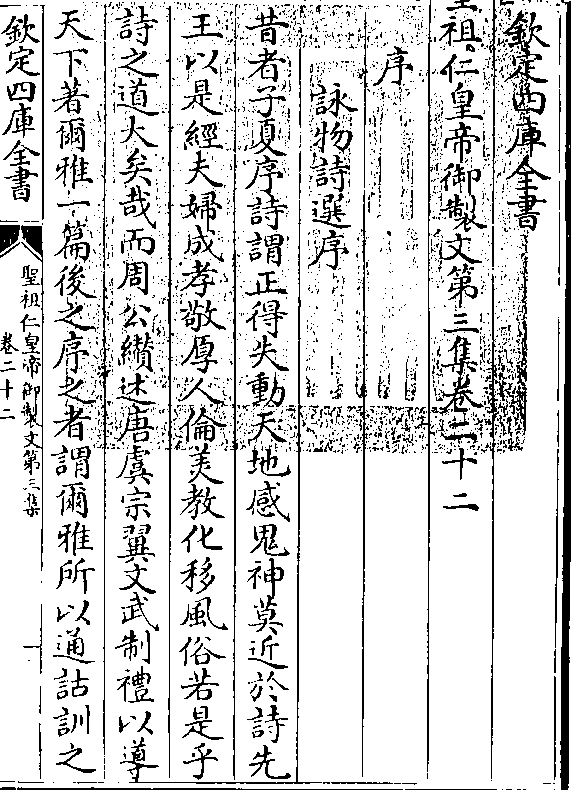 欽定四庫全書
聖祖仁皇帝御製文第三集卷二十二
序
詠物詩選序
昔者子夏序詩謂正得失動天地感鬼神莫近於詩先
王以是經夫婦成孝敬厚人倫美教化移風俗若是乎
詩之道大矣哉而周公纘述唐虞宗翼文武制禮以導
天下著爾雅一篇後之序之者謂爾雅所以通詁訓之
欽定四庫全書
聖祖仁皇帝御製文第三集
卷二十二
一